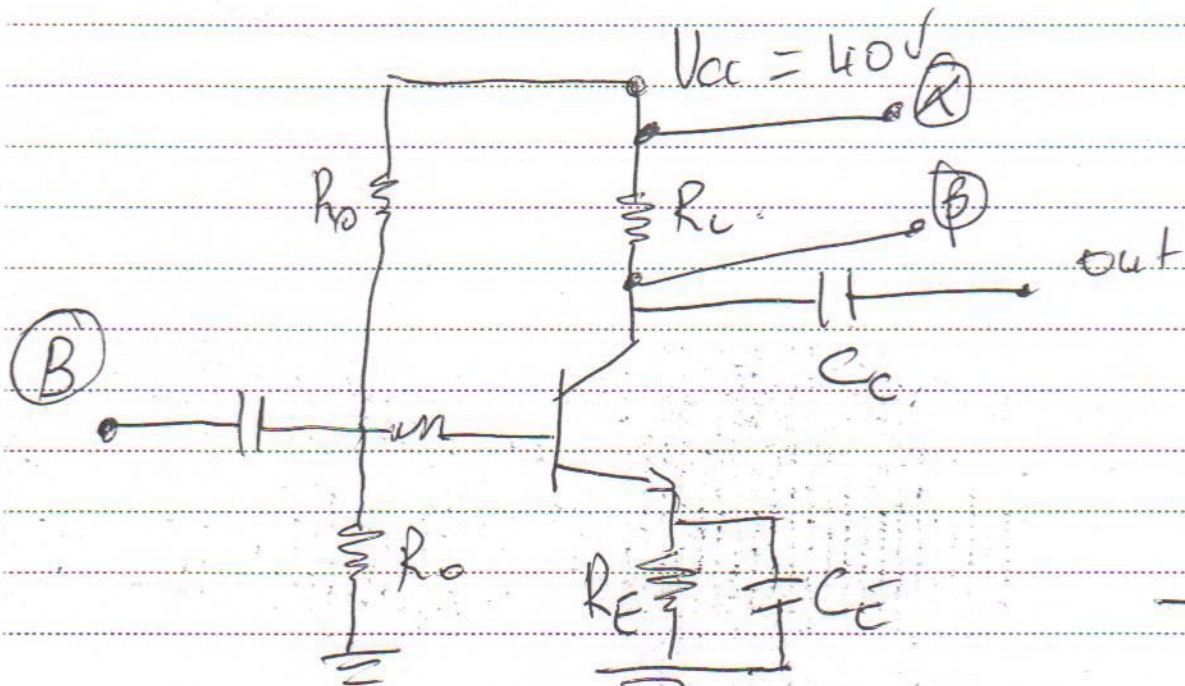 Vcc = 40V
α
R₀
Rc
β
out
B
Cc
R₀
RE
CE